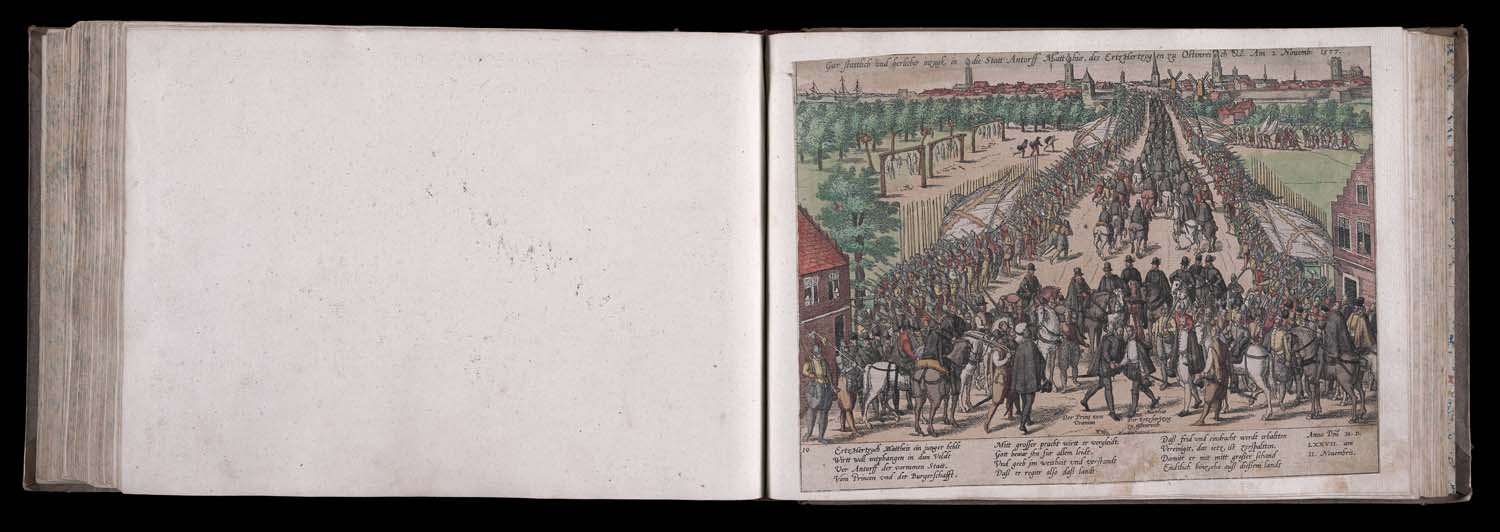 Gar stattlich und herlicher inzugk, in die Statt Antorff Matthiæ, des Ertzhertzogen zu Osten reich &c. Am 2 Nouemb: 1577.
Der Prinz von
Uranien
Matthias
Der ertzhertzog
zu osterreich
10
Ertzhertzoch Mattheis ein junger heldt
Wirtt woll entphangen in dem Veldt
Vor Antorff der vornmen Statt,
Vom Princen vnd der Burgerschafft.
Mitt grosser pracht wirtt er vergleidt:
Gott bewar ihn fur allem leidt,
Vnd geeb im weisheit vnd verstandt
Daß er regier also daß landt
Daß frid vnd eindracht werdt erhaltten
Vereinigt, das ietz ist zerspaltten.
Damitt er mit mitt grosser schand
Endtlich hinziehe auß diesem landt
Anno Dñi M. D.
LXXVII. am
II. Nouembris.